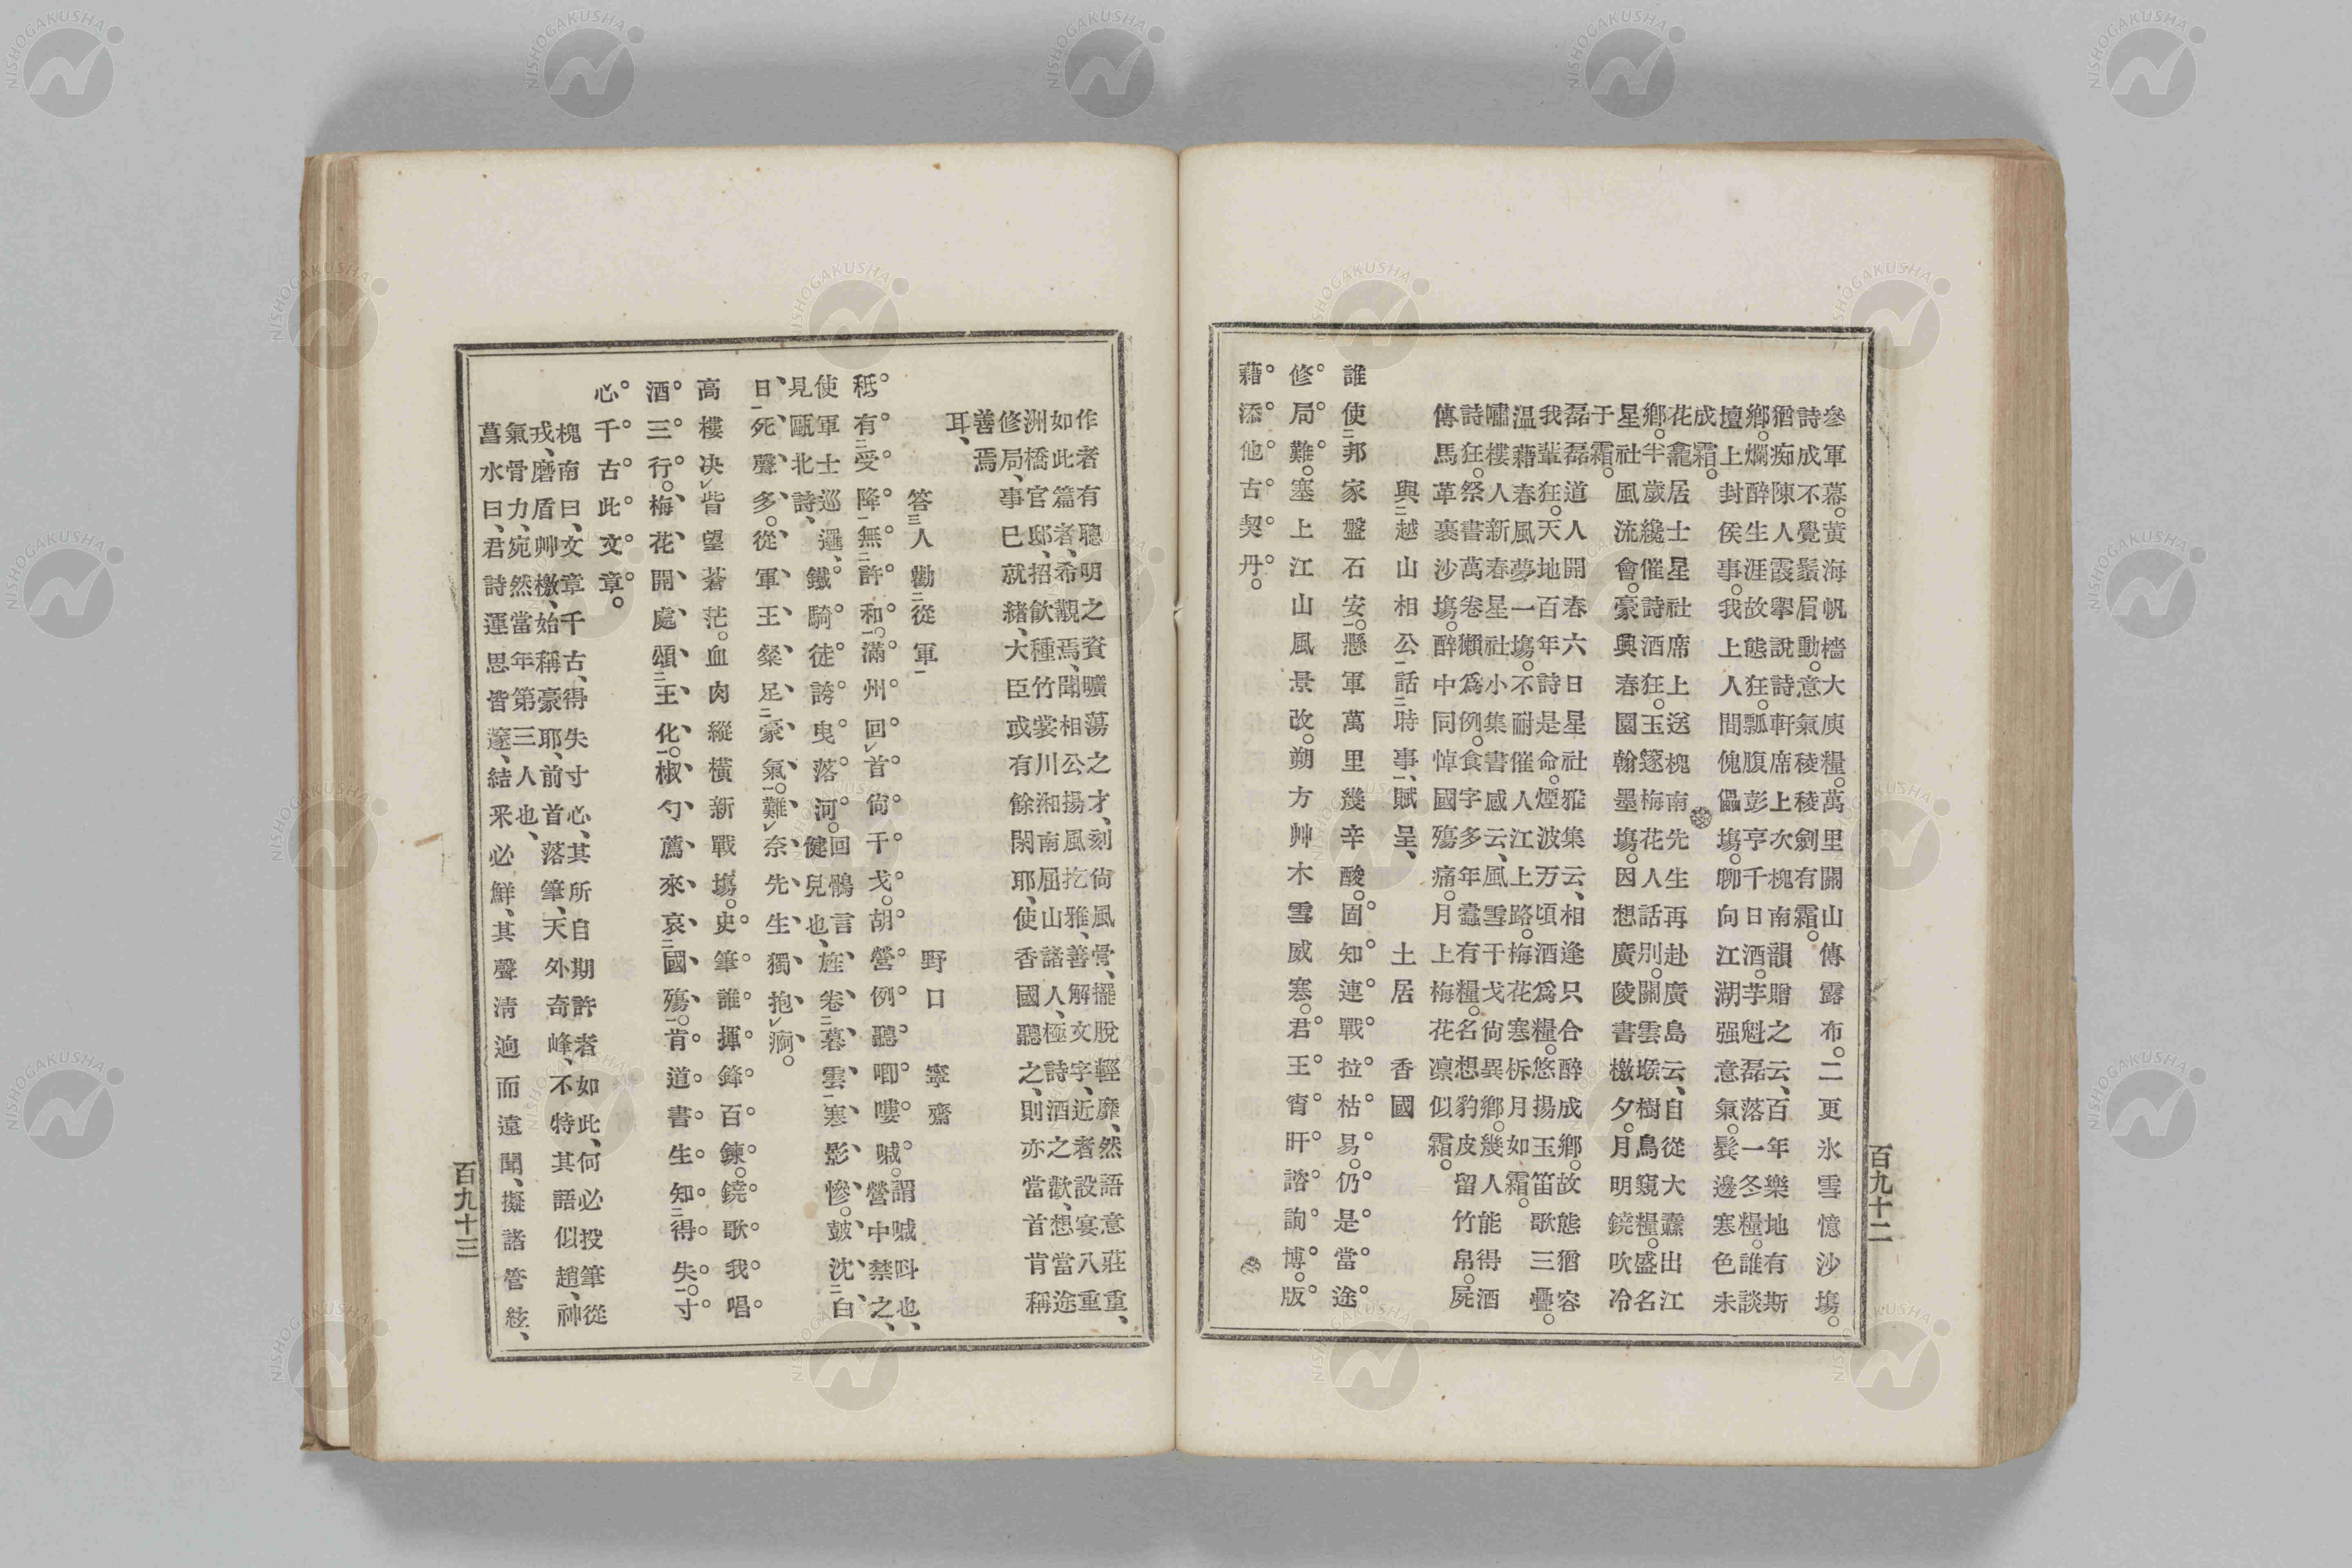 參軍幕。黃海帆檣大庾糧。萬里關山傳露布。二更氷雪憶沙塲。
詩成不覺鬚眉動。意氣稜稜劍有霜。
猶痴陳人霞擧說詩軒席上次槐南韻贈之云、百年樂地有斯
鄉。爛醉生涯故態狂。瓢腹彭亨千日酒。芋魁磊落一冬糧。誰談
壇上封侯事。我上人間傀儡塲。聊向江湖强意氣。鬂邊寒色未
成霜。
花龕居士星社席上送槐南先生再赴廣島云、自從大纛出江
鄉。半歲纔催詩酒狂。玉篴梅花人話別。關雲堠樹鳥窺糧。盛名
星社風流會。豪興春園翰墨塲。因想廣陵書檄夕。月明鐃吹冷
于霜。
磊磊道人開春六日星社雅集云、相逢只合醉成鄉。故態猶容
我輩狂。天地百年詩是命。煙波万頃酒爲糧。悠揚玉笛歌三疊。
溫藉春風夢一塲。不耐催人江上路。梅花寒柝月如霜。
嘯樓人新春星社小集書感云、風雪干戈尙異鄉。幾人能得酒
詩狂。祭書萬卷獺爲例。食字多年蠹有糧。名想豹皮留竹帛。屍
傳馬革裹沙塲。醉中同悼國殤痛。月上梅花凛似霜。
與二越山相公一話二時事一、賦呈、 土居香國
誰使二邦家盤石安一。懸軍萬里幾辛酸。固知連戰拉枯易。仍是當途
修局難。塞上江山風景改。朔方艸木雪威寒。君王宵旰諮詢博。版
藉添他古契丹。
百九十二
作者有聽明之資曠蕩之才、刻尙風骨、擺脫輕靡、然語意莊重、
如此篇者、希觀焉、聞相公揚風扢雅、善解文字、近者設宴八重
洲橋官邸、招飮種竹裳川湘南屈山諸人、極詩酒之歡、想當途
修局、事已就緖、大臣或有餘閑耶、使香國聽之、則亦當首肯稱
善焉
耳、
答三人勸二從軍一 野口寧齋
秪有二受降一無二許和一。滿州回レ首尙干戈。胡營例聽喞嘍嘁。謂嘁呌也、營中禁之、
使軍士巡邏、見甌北詩、鐵騎徒誇曳落河。回鶻言健兒也、旌卷二暮雲一寒影慘。鼓沈二白
日一死聲多。從軍王粲足二豪氣一。難レ奈先生獨抱レ痾。
高樓決レ眥望蒼茫。血肉縱橫新戰塲。史筆誰揮鋒百鍊。鐃歌我唱
酒三行。梅花開處頌二王化一。椒勺薦來哀二國殤一。肯道書生知二得失一。寸
心千古此文章。
槐南曰、文章千古、得失寸心、其所自期許者如此、何必投筆從
戎、磨盾艸檄、始稱豪耶、前首落筆、天外奇峰、不特其語似趙、神
氣骨力、宛然當年第三人也、
菖水曰、君詩運思皆邃、結采必鮮、其聲淸逈而遠聞、擬諸管絃、
百九十三